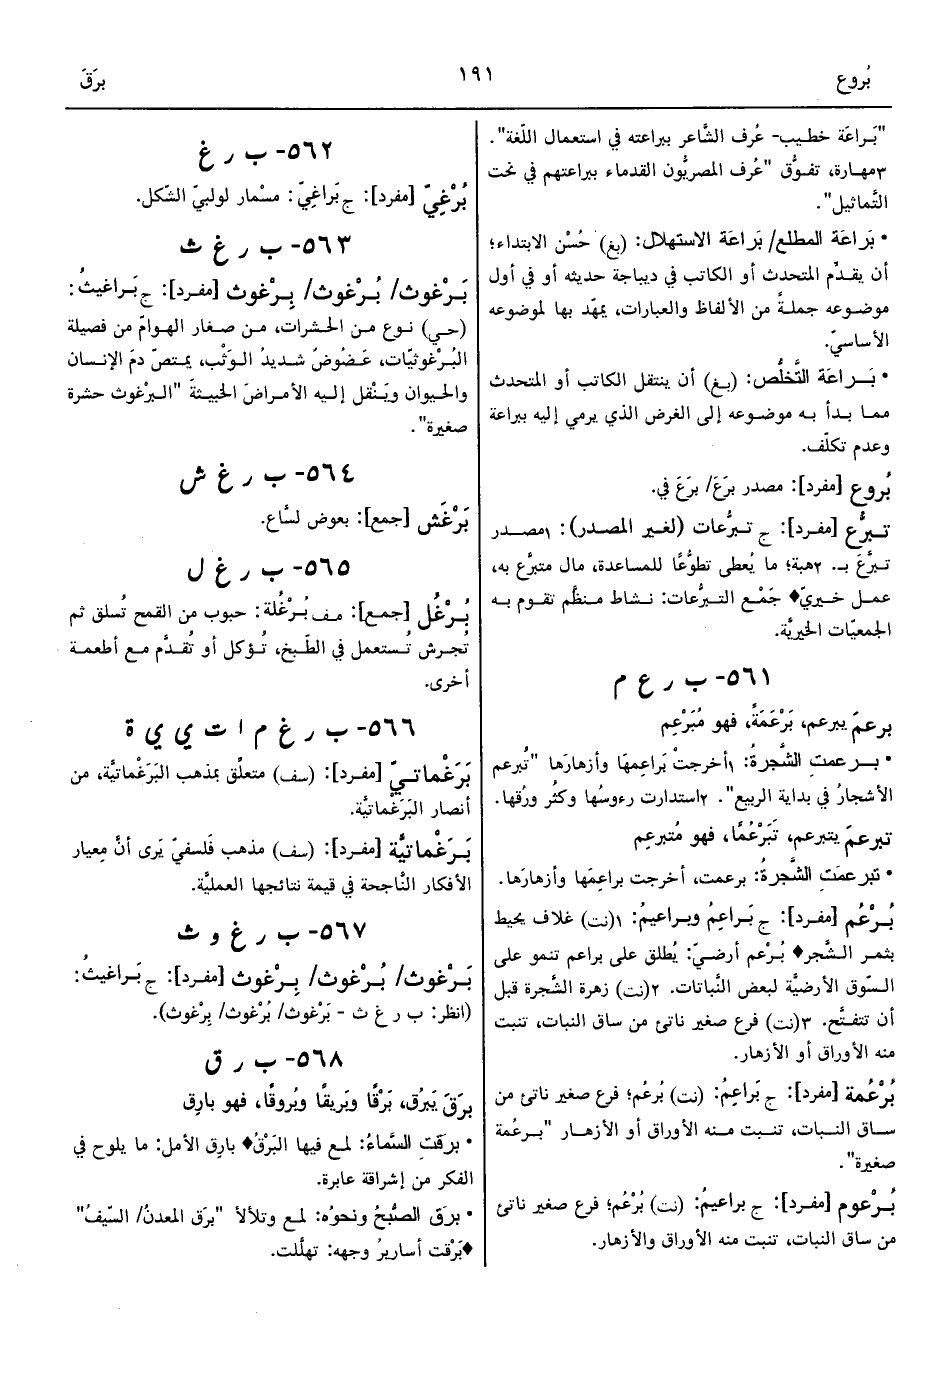 بُروع
١٩١
برَقَ
"بَراعَة خطيب- عُرف الشَّاعر ببراعته في استعمال اللّغة".
٣مهارة، تفوُّق "عُرف المصريُّون القدماء ببراعتهم في نحت
التَّماثيل".
• بَرَاعة المطلع/ بَرَاعة الاستهلال: (بغ) حُسْن الابتداء؛
أن يقدِّم المتحدث أو الكاتب في ديباجة حديثه أو في أول
موضوعه جملةً من الألفاظ والعبارات، يمهّد بها لموضوعه
الأساسيّ.
• بَراعَة التَّخلُّص: (بغ) أن ينتقل الكاتب أو المتحدث
مما بدأ به موضوعه إلى الغرض الذي يرمي إليه ببراعة
وعدم تكلّف.
بُروع [مفرد]: مصدر برَعَ/ برَعَ في.
تبرُّع [مفرد]: ج تبرُّعات (لغير المصدر): ١مصدر
تبرَّعَ بـ. ٢هبة؛ ما يُعطى تطوُّعًا للمساعدة، مال متبرَّع به،
عمل خيريّ♦ جَمْع التبرُّعات: نشاط منظَّم تقوم به
الجمعيّات الخيريَّة.
٥٦١- ب ر ع م
برعمَ يبرعم، بَرْعَمَةً، فهو مُبَرْعِم
• برعمتِ الشَّجرةُ: ١أخرجتْ بَراعِمهَا وأزهارَها "تُبرعم
الأشجارُ في بداية الربيع". ٢استدارت رءوسُها وكثُر ورَقُها.
تبرعمَ يتبرعم، تَبَرْعُمًا، فهو مُتبرعِم
• تبرعمَتِ الشَّجرةُ: برعمت، أخرجت براعِمَها وأزهارَها.
بُرْعُم [مفرد]: ج بَراعِمُ وبراعيمُ: ١(نت) غلاف يحيط
بثمر الشَّجر♦ بُرْعم أرضيّ: يُطلق على براعم تنمو على
السّوق الأرضيَّة لبعض النَّباتات. ٢(نت) زهرة الشَّجرة قبل
أن تتفتَّح. ٣(نت) فرع صغير ناتئ من ساق النبات، تنبت
منه الأوراق أو الأزهار.
بُرْعُمة [مفرد]: ج بَراعِمُ: (نت) بُرعُم؛ فرع صغير ناتئ من
ساق النبات، تنبت منه الأوراق أو الأزهار "برعُمة
صغيرة".
بُرْعوم [مفرد]: ج براعيمُ: (نت) بُرْعُم؛ فرع صغير ناتئ
من ساق النبات، تنبت منه الأوراق والأزهار.
٥٦٢- ب ر غ
بُرْغِيّ [مفرد]: ج بَراغِيّ: مسْمار لولبيّ الشّكل.
٥٦٣- ب ر غ ث
بَرْغوث/ بُرْغوث/ بِرْغوث [مفرد]: ج بَراغيثُ:
(حي) نوع من الحشرات، من صغار الهوامّ من فصيلة
البُرغوثيّات، عَضُوضٌ شديدُ الوَثْب، يمتصّ دمَ الإنسان
والحيوان ويَنْقل إليه الأمراضَ الخبيثةَ "البرْغوث حشرة
صغيرة".
٥٦٤- ب ر غ ش
بَرْغَش [جمع]: بعوض لسَّاع.
٥٦٥- ب ر غ ل
بُرْغُل [جمع]: مف بُرْغُلة: حبوب من القمح تُسلق ثم
تُجرش تُستعمل في الطّبخ، تُؤكل أو تُقدَّم مع أطعمة
أخرى.
٥٦٦- ب ر غ م ا ت ي ي ة
بَرَغْماتيّ [مفرد]: (سف) متعلِّق بمذهب البَرَغْماتيَّة، من
أنصار البَرَغْماتيَّة.
بَرَغْماتيَّة [مفرد]: (سف) مذهب فَلسفيّ يَرى أنَّ مِعيار
الأفكار النَّاجحة في قيمة نتائجها العمليَّة.
٥٦٧- ب ر غ و ث
بَرْغوث/ بُرْغوث/ بِرْغوث [مفرد]: ج بَراغيثُ:
(انظر: ب ر غ ث - بَرْغوث/ بُرْغوث/ بِرْغوث).
٥٦٨- ب ر ق
برَقَ يَبرُق، بَرْقًا وبَريقًا وبُروقًا، فهو بارِق
• برقتِ السَّماءُ: لمع فيها البَرْقُ♦ بارِق الأمل: ما يلوح في
الفكر من إشراقة عابرة.
• برقَ الصُّبحُ ونحوُه: لمع وتلألأ "برَق المعدنُ/ السَّيفُ"
♦بَرْقت أساريرُ وجهه: تهلَّلت.